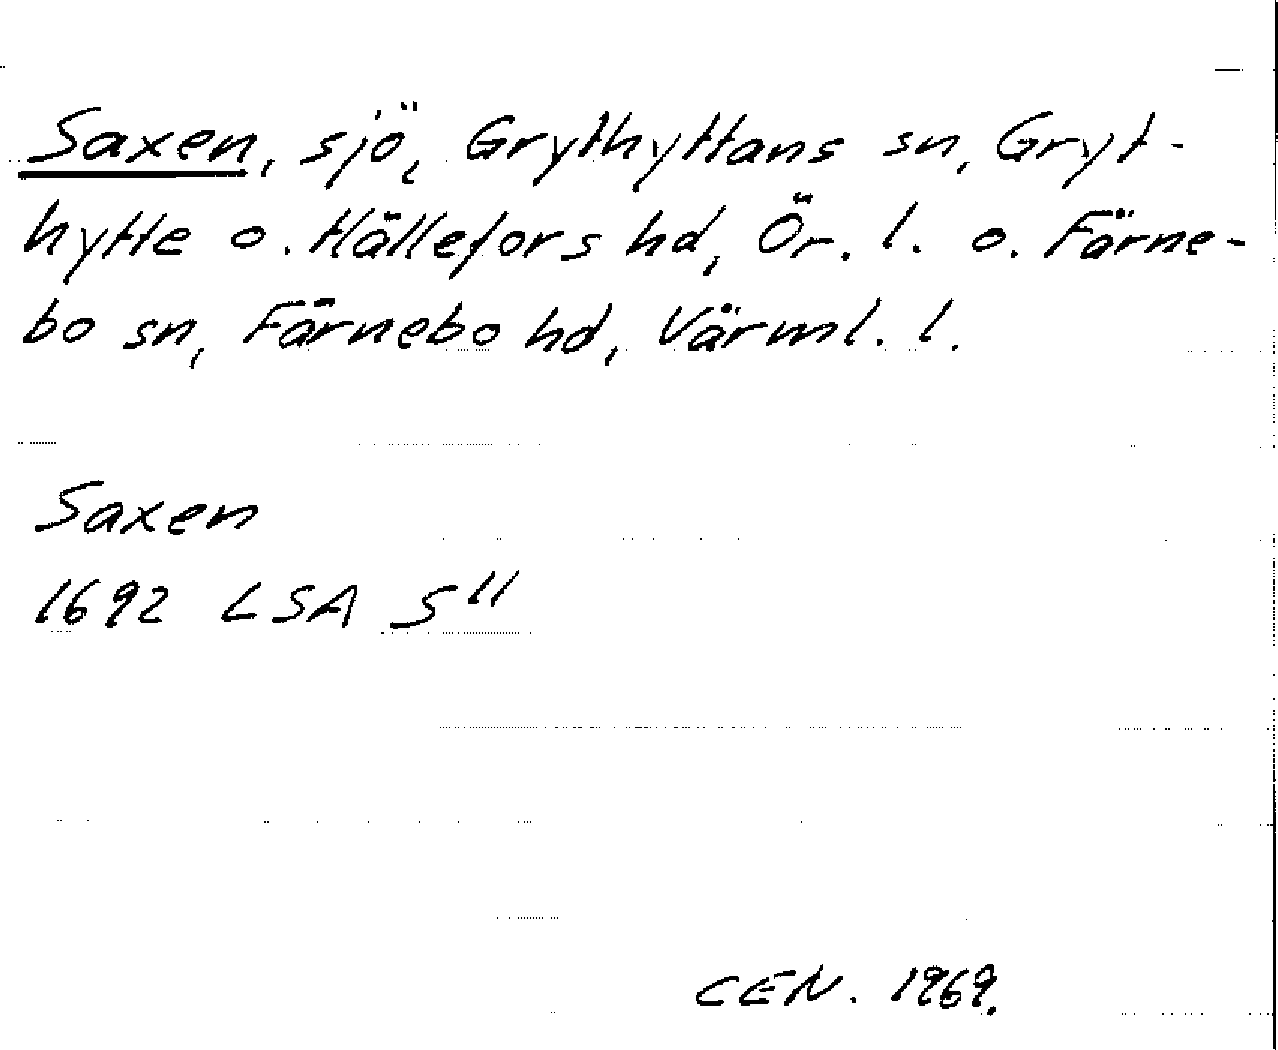 Saxen, sjö, Grythyttans sn, Gryt-
hytte o. Hällefors hd, Ör. l. o. Färne-
bo sn, Färnebo hd, Värml. l.
Saxen
1692 LSA S 11
CEN. 1969.